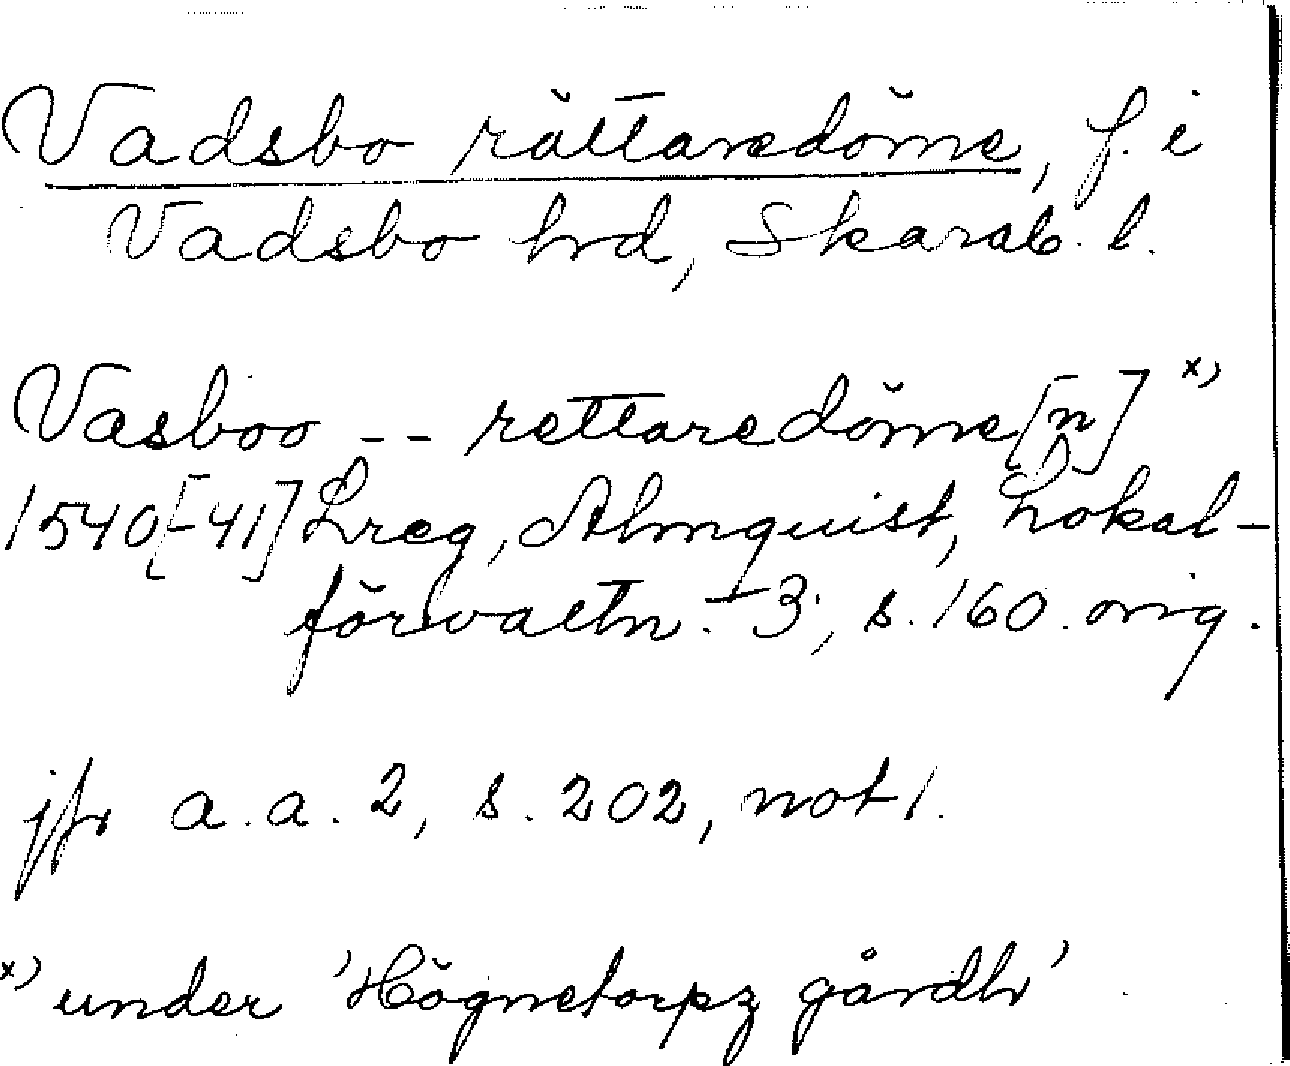 Vadsbo rättaredöme, f. i
Vadsbo hd, Skarab. l.
Vasboo -- rettaredöme[n] x)
1540[-41] Lreg, Almquist, Lokal-
förvaltn. 3, s. 160. orig.
jfr a.a. 2, s. 202, not 1.
x) under 'Högnetorpz gårdh'